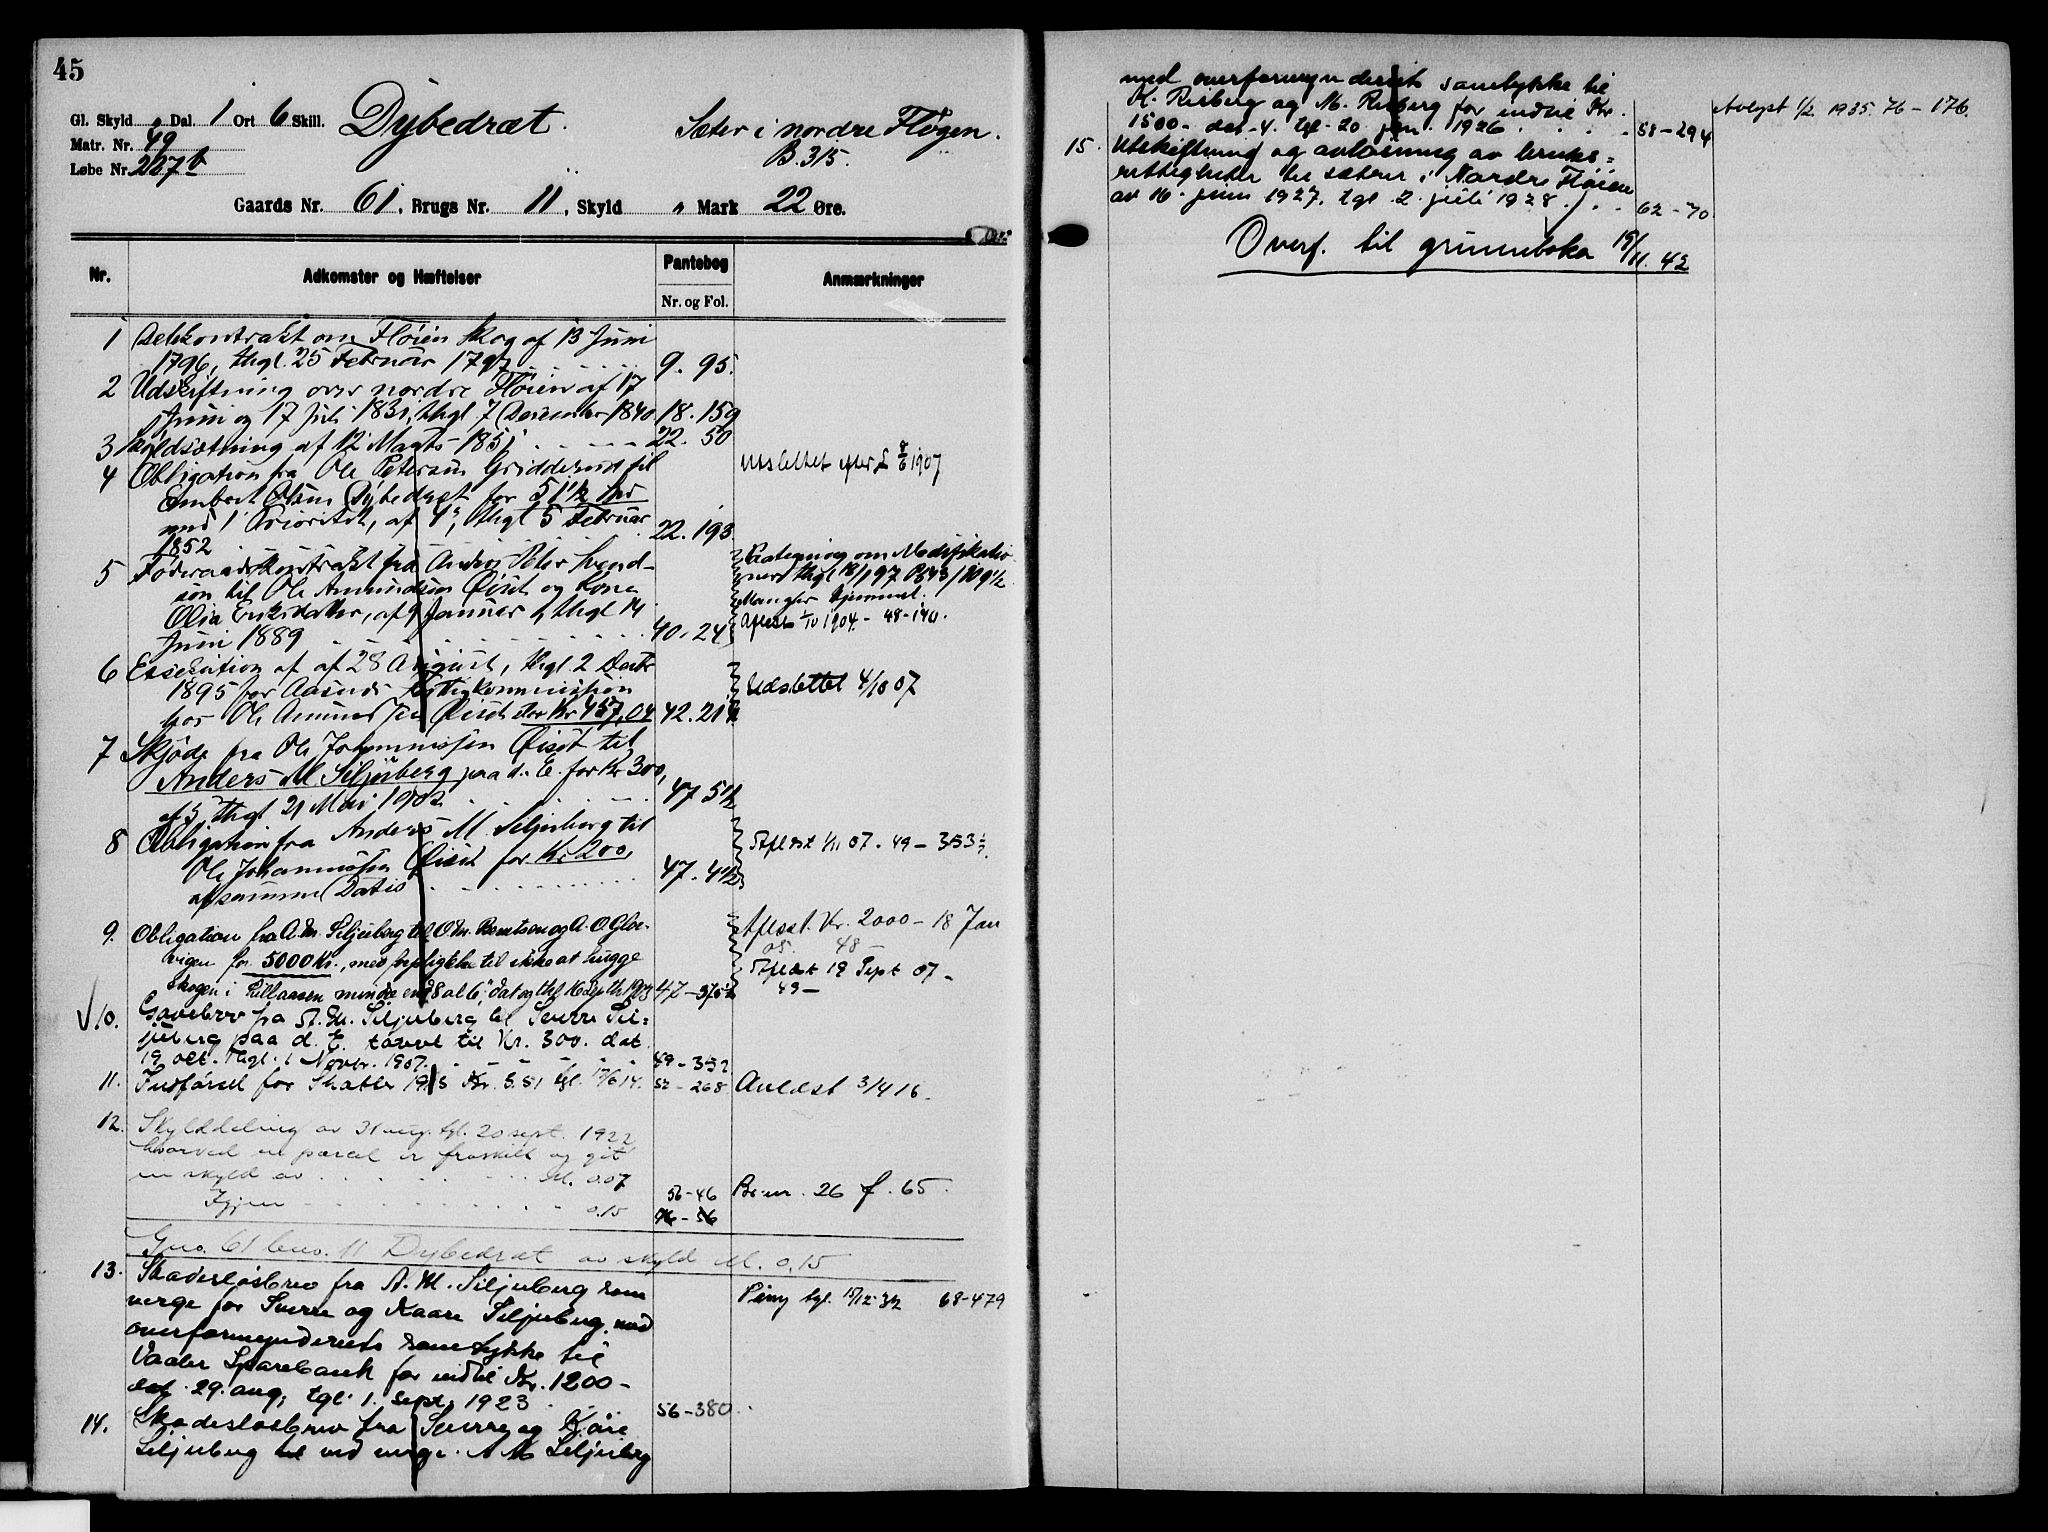 45
Gl. Skyld " Dal. 1 Ort 6 Skill. Dybedræt. Sæter i nordre Fløgen.
Matr. Nr. 49 B. 315.
Løbe Nr. 227b
Gaards Nr. 61, Brugs Nr. 11, Skyld " Mark 22 Øre.
Nr. Adkomster og Hæftelser Pantebog Anmærkninger
Nr. og Fol.
1 Delekontrakt om Fløien Skog af 13 Juni
1796, thgl. 25 Februar 1797 9. 95.
2 Udskiftning over nordre Fløien af 17
Juni og 17 Juli 1831, thgl 7 December 1840 18. 159
3 Skyldsætning af 12 Marts 1851 22. 50
4 Obligation fra Ole Petersen Griddesend til Utslettet efter L 8/6 1907
Embret Olsen Dybedræt for 51 1/2 Spd
med 1 Prioritet, af 4, thgl 5 Februar 22. 193
1852
5 Føderaadskontrakt fra Anders Peter Svend- Paategning om Modifikatio-
sen til Ole Amundsen Qvist og Kone ner thgl 18/1 97 Pb 43/109 1/2
Olia Eriksdatter, af 9 Januar, thgl 14 Mangler Hjemmel.
Juni 1889 40. 24 Aflæst 1/10 1904 - 48-140.
6 Exsecution af af 28 August, thgl. 2 Septbr
1895 for Aasnes Forligskommission Udslettet 4/10 07
hos Ole Amundsen Qvist stor Kr 457,04 42. 21
7 Skjøde fra Ole Johannessen Qvist til
Anders M Siljuberg paa d. E. for Kr 300,
af 5, thgl 21 Mai 1902 47 5 1/2
8 Obligation fra Anders M. Siljuberg til
Ole Johannessen Qvist for Kr 200, Aflæst 1/11 07. 49-353
af samme Datis 47. 4 1/2
9. Obligation fra A. M. Siljuberg til O. M. Berntsen og A. O. Glæ- Aflæst. Kr. 2000 - 18 Jan
for 5000 Kr., med forpligtelse til ikke at hugge 05. 48 -
Skogen i Lillaasen mindre end 8 al 6", dat og thgl 16 Septbr 1903 47-375 Aflæst 19 Sept 07 -
49 -
10. Gavebrev fra A. M. Siljuberg til Sverre Sil=
juberg paa d. E. taxert til Kr. 300. dat.
19 okt. thgl. 1 Novbr. 1907. 49-352
11. Indførsel for Skatter 1913 Kr. 5.51 tgl. 17/6 14. 52-268 Avlæst 3/4 16.
12. Skylddeling av 31 aug. tgl. 20 sept. 1922
hvorved en parcel er fraskilt og git
en skyld av M. 0.07 56-46 Br.nr. 26 f. 65.
Igjen 0.15 76-56
Gno. 61 bno. 11 Dybedræt av skyld M. 0,15
13. Skadesløsbrev fra A. M. Siljuberg som
verge for Sverre og Kaare Siljuberg, med Piny tgl. 15/12-32 68-479
overformynderiets samtykke til
Vaaler Sparebank for indtil Kr. 1200 -
dat. 29. aug; tgl. 1. sept. 1923 56-380
14. Skadesløsbrev fra Sverre og Kåre
Siljuberg ved verge. A M Siljuberg
med overformynderiets samtykke til
K. Risberg og M. Risberg for indtil Kr. Avlyst 1/2 1935. 76-176.
1500 - dat. 4. tgl. 20 jan. 1926 58-294
15. Utskiftning og avløsning av bruks=
rettigheter til sæter i Nordre Fløien
av 16. juni 1927, tgl. 2. juli 1928. 62-70
Overf. til grunnboka 19/11. 42